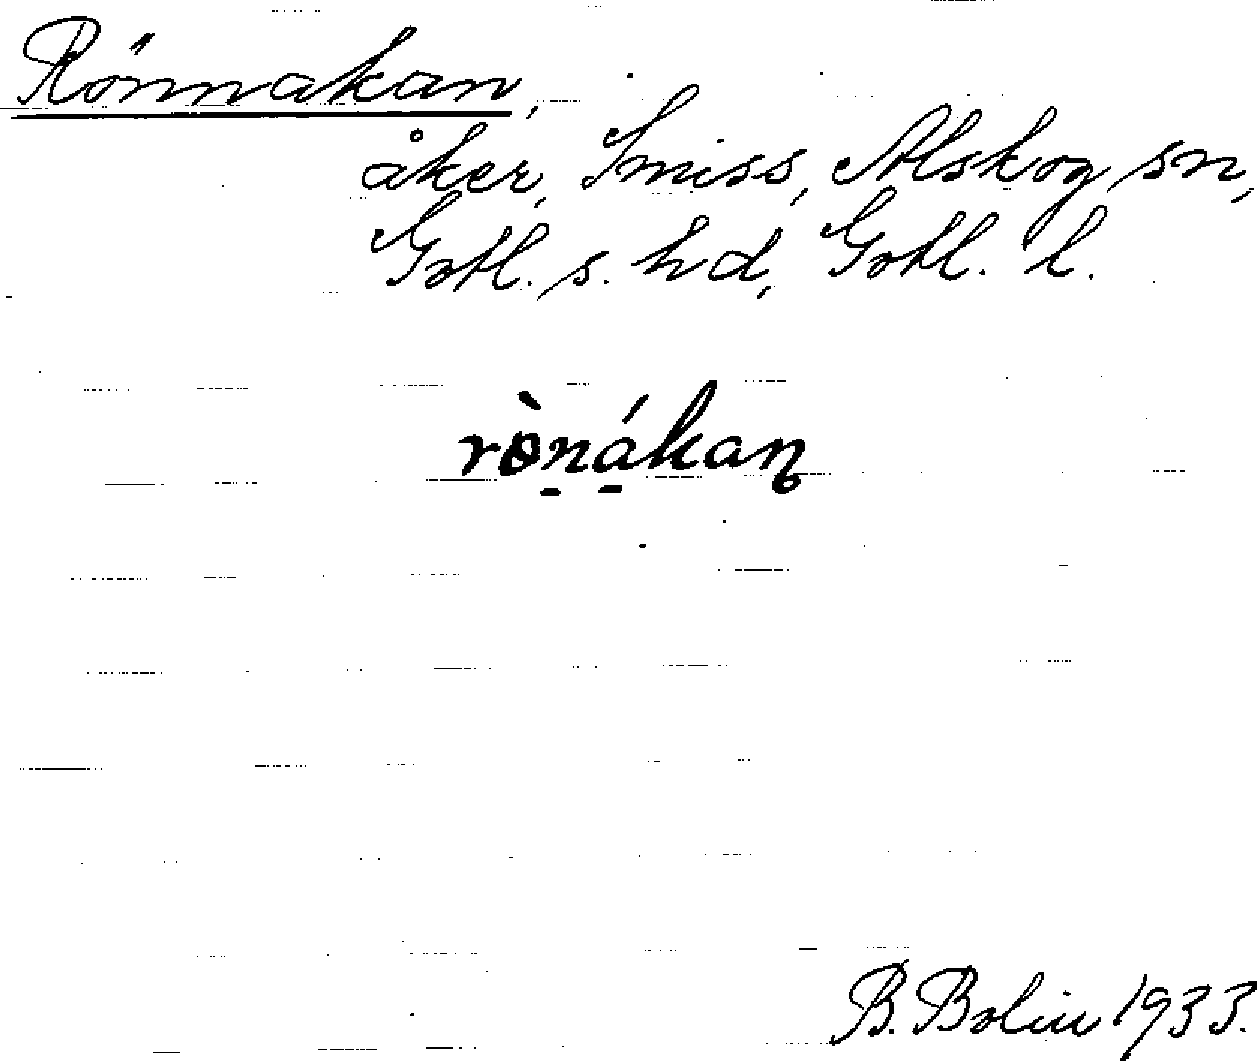 Rönnakan,
åker, Smiss, Alskog sn,
Gotl. s. hd, Gotl. l.
rònákan
B. Bolin 1933.